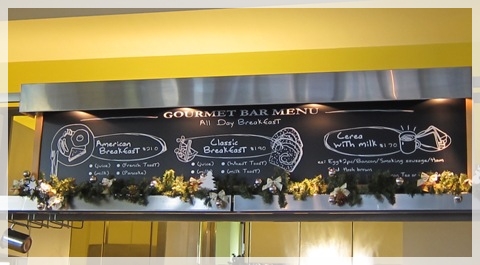 GOURMET BAR MENU
All Day Breakfast
American
Breakfast $210
(juice) (French Toast)
(milk) (Pancake)
Classic
Breakfast $190
(juice) (Wheat Toast)
(milk) (milk Toast)
Cerea
with milk $170
w/ Egg*2pcs/Bacon/Smoking sausage/Ham
Hash brown